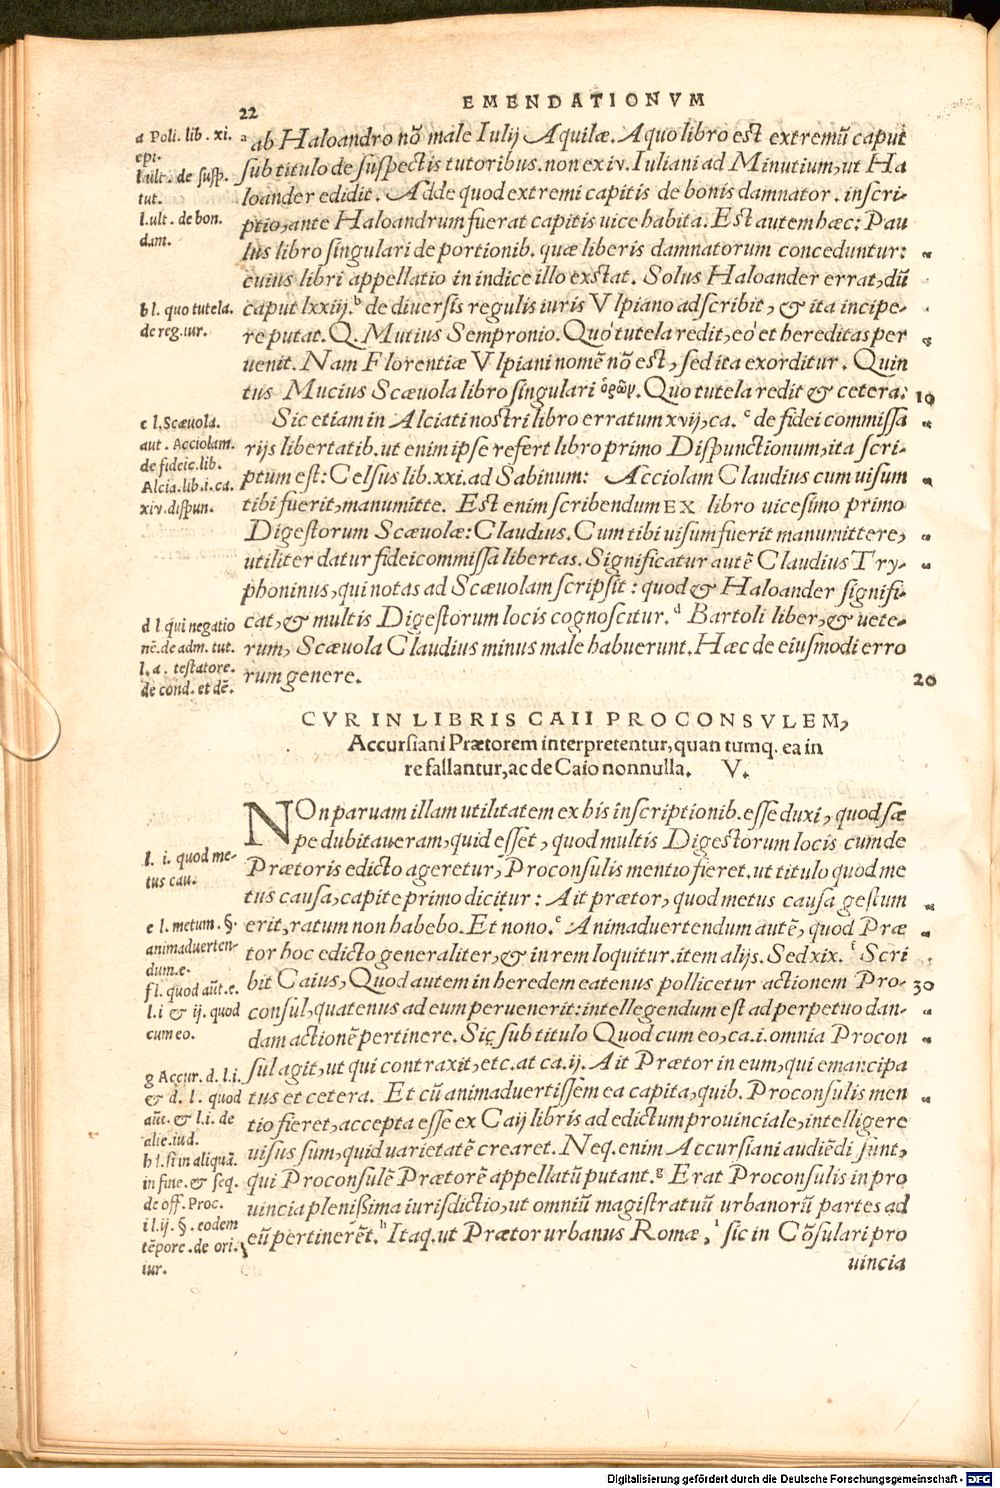 22
EMENDATIONVM
a Poli. lib. xi.
epi.
l.ult. de susp.
tut.
l.ult. de bon.
dam.
b l. quo tutela.
de reg.iur.
c l.Scæuola.
aut. Acciolam.
de fideic.lib.
Alcia.lib.i.ca.
xiv.dispun.
d l.qui negatio
nẽ.de adm. tut.
l.a. testatore.
de cond. et dẽ.
a ab Haloandro nõ male Iulij Aquilæ. A quo libro est extremũ caput
sub titulo de suspectis tutoribus. non ex iv. Iuliani ad Minutium, ut Ha
loander edidit. Adde quod extremi capitis de bonis damnator. inscri-
ptio, ante Haloandrum fuerat capitis uice habita. Est autem hæc: Pau
lus libro singulari de portionib. quæ liberis damnatorum conceduntur:
cuius libri appellatio in indice illo exstat. Solus Haloander errat, dũ
caput lxxiij. b de diuersis regulis iuris Vlpiano adscribit, & ita incipe-
re putat. Q. Mutius Sempronio. Quò tutela redit, eò et hereditas per
uenit. Nam Florentiæ Vlpiani nomẽ nõ est, sed ita exorditur. Quin
tus Mucius Scæuola libro singulari ὅρων. Quo tutela redit & cetera: 10
Sic etiam in Alciati nostri libro erratum xvij, ca. c de fidei commissa
rijs libertatib. ut enim ipse refert libro primo Dispunctionum, ita scri-
ptum est: Celsus lib. xxi. ad Sabinum: Acciolam Claudius cum uisum
tibi fuerit, manumitte. Est enim scribendum EX libro uicesimo primo
Digestorum Scæuolæ: Claudius. Cum tibi uisum fuerit manumittere,
utiliter datur fideicommissa libertas. Significatur autẽ Claudius Try-
phoninus, qui notas ad Scæuolam scripsit: quod & Haloander signifi-
cat, & multis Digestorum locis cognoscitur. d Bartoli liber, & uete-
rum, Scæuola Claudius minus male habuerunt. Hæc de eiusmodi erro
rum genere. 20
CVR IN LIBRIS CAII PROCONSVLEM,
Accursiani Prætorem interpretentur, quantumq. ea in
re fallantur, ac de Caio nonnulla. V.
l. i. quod me-
tus cau.
e l.metum.§.
animaduerten-
dum.e.
f l. quod aũt.e.
l.i & ij. quod
cum eo.
g Accur. d. l.i.
& d. l. quod
aũt. & l.i. de
alie.iud.
h l.si in aliquã.
in fine.& seq.
de off. Proc.
i l.ij. §. eodem
tẽpore .de ori.
iur.
NOn paruam illam utilitatem ex his inscriptionib. esse duxi, quod sæ
pe dubitaueram, quid esset, quod multis Digestorum locis cum de
Prætoris edicto ageretur, Proconsulis mentio fieret. ut titulo quod me
tus causa, capite primo dicitur: Ait prætor, quod metus causa gestum
erit, ratum non habebo. Et nono. e Animaduertendum autẽ, quod Præ
tor hoc edicto generaliter, & in rem loquitur. item alijs. Sed xix. f Scri
bit Caius, Quod autem in heredem eatenus pollicetur actionem Pro- 30
consul, quatenus ad eum peruenerit: intellegendum est ad perpetuo dan-
dam actionẽ pertinere. Sic sub titulo Quod cum eo, ca.i. omnia Procon
sul agit, ut qui contraxit, etc. at ca. ij. Ait Prætor in eum, qui emancipa
tus et cetera. Et cũ animaduertissem ea capita, quib. Proconsulis men
tio fieret, accepta esse ex Caij libris ad edictum prouinciale, intelligere
uisus sum, quid uarietatẽ crearet. Neq. enim Accursiani audiẽdi sunt,
qui Proconsulẽ Prætorẽ appellatũ putant. g Erat Proconsulis in pro
uincia plenissima iurisdictio, ut omniũ magistratuũ urbanorũ partes ad
eũ pertinerẽt. h Itaq. ut Prætor urbanus Romæ, i sic in Cõsulari pro
uincia
Digitalisierung gefördert durch die Deutsche Forschungsgemeinschaft - DFG